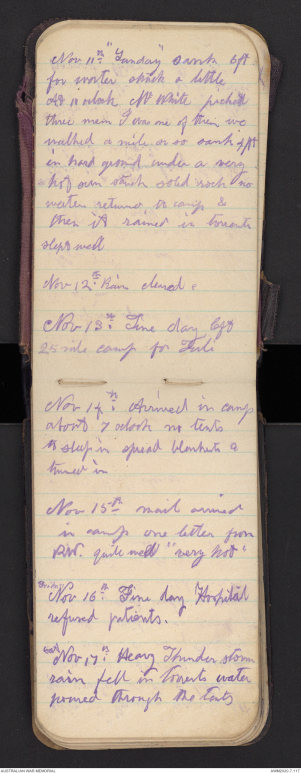 Nov 11th "Sunday" sank 6ft
for water struck a little
at 11 oclock Mr White picked
three men I was one of them we
walked a mile or so sank 4ft
in hard ground under a very
hot sun struck solid rock no
water returned to camp &
then it rained in torrents
slept well
Nov 12th Rain cleared
Nov 13th Fine day left
25 mile camp for
Nov 14th Arrived in camp
about 7 oclock no tents
to sleep in spread blankets &
turned in
Nov 15th mail arrived
in camp one letter from
quite well "very hot"
Friday
Nov 16th Fine day Hospital
refused patients.
Sat
Nov 17th Heavy Thunder storm
rain fell in torrents water
poured through the tents
AUSTRALIAN WAR MEMORIAL